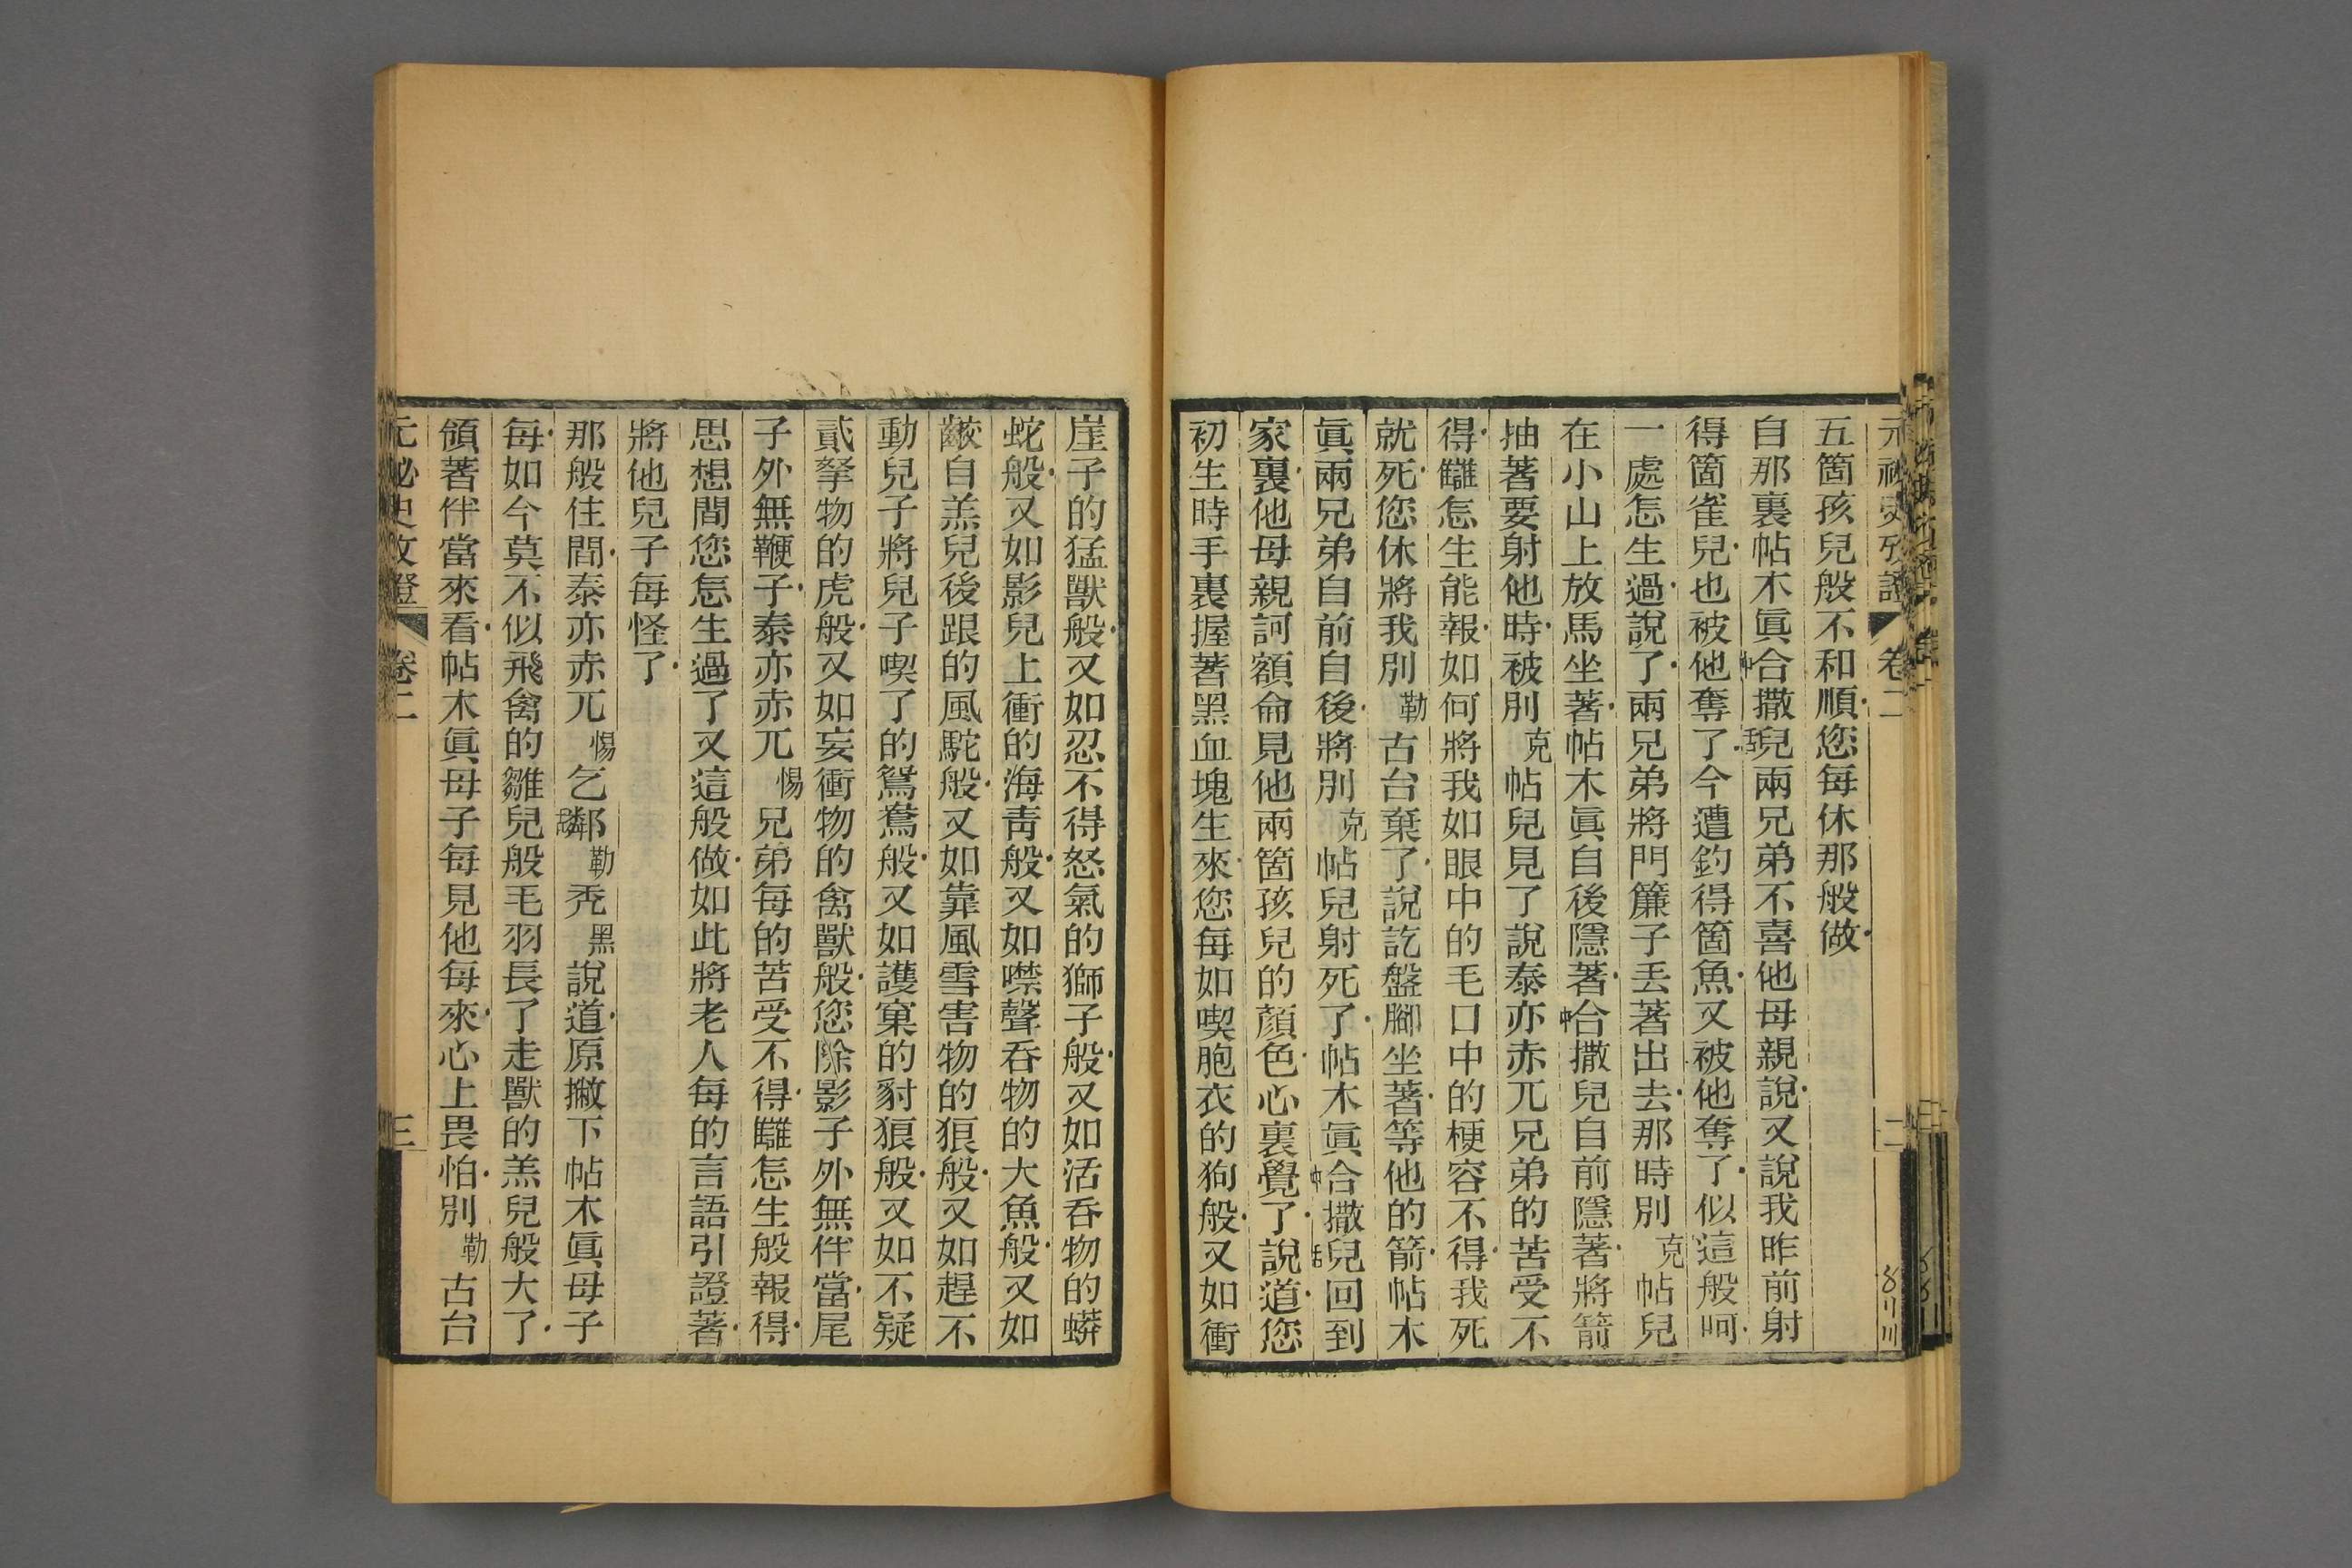 元祕史攷證 卷二 二
五箇孩兒般不和順您每休那般做
自那裏帖木眞中合撒舌兒兩兄弟不喜他母親說又說我昨前射
得箇雀兒也被他奪了今遭釣得箇魚又被他奪了似這般呵
一處怎生過說了兩兄弟將門簾子丟著出去那時別克帖兒
在小山上放馬坐著帖木眞自後隱著中合撒兒自前隱著將箭
抽著要射他時被別克帖兒見了說泰亦赤兀兄弟的苦受不
得讎怎生能報如何將我如眼中的毛口中的梗容不得我死
就死您休將我別勒古台棄了說訖盤腳坐著等他的箭帖木
眞兩兄弟自前自後將別克帖兒射死了帖木眞中合撒舌兒回到
家裏他母親訶額侖見他兩箇孩兒的顏色心裏覺了說道您
初生時手裏握著黑血塊生來您每如喫胞衣的狗般又如衝
崖子的猛獸般又如忍不得怒氣的獅子般又如活吞物的蟒
蛇般又如影兒上衝的海靑般又如噤聲吞物的大魚般又如
齩自羔兒後跟的風駝般又如靠風雪害物的狼般又如趕不
動兒子將兒子喫了的鴛鴦般又如護窠的豺狼般又如不疑
貳拏物的虎般又如妄衝物的禽獸般您除影子外無伴當尾
子外無鞭子泰亦赤兀惕兄弟每的苦受不得讎怎生般報得
思想間您怎生過了又這般做如此將老人每的言語引證著
將他兒子每怪了
那般住間泰亦赤兀惕乞舌鄰勒禿黑說道原撇下帖木眞母子
每如今莫不似飛禽的雛兒般毛羽長了走獸的羔兒般大了
領著伴當來看帖木眞母子每見他每來心上畏怕別勒古台
元祕史攷證 卷二 三